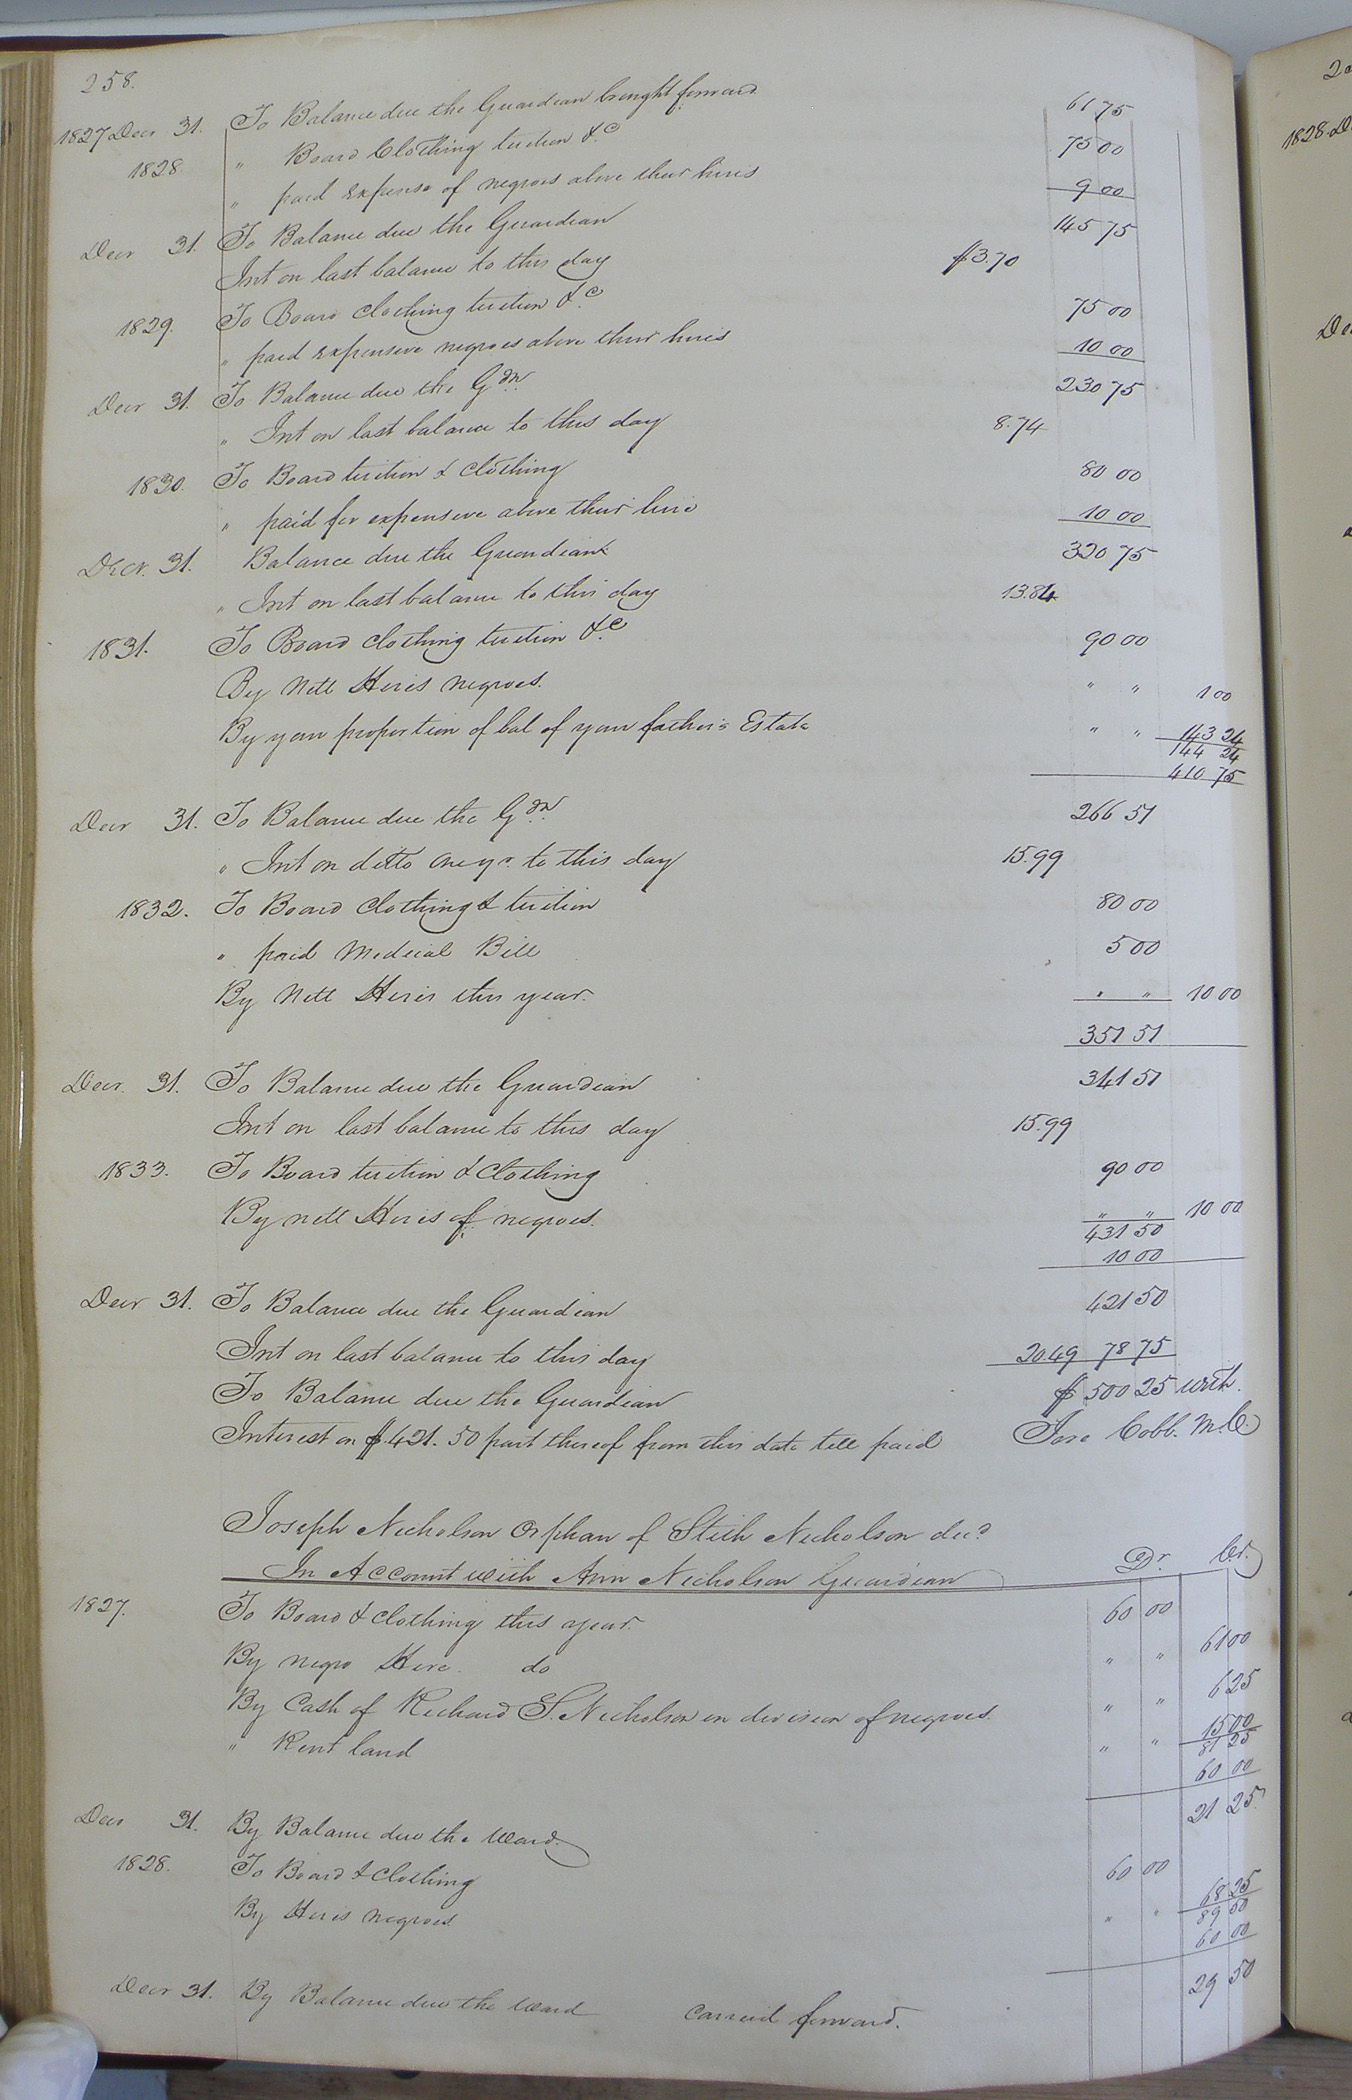 258.
1827 Decr 31. To Balance due the Guardian brought forward 61 75
1828 " Board Clothing tuition &c 75 00
" paid expense of negroes above their hires 9 00
Decr 31. To Balance due the Guardian 145 75
Int on last balance to this day $3.70
1829. To Board clothing tuition &c 75 00
" paid expensive negroes above their hires 10 00
Decr 31. To Balance due the Gdn. 230 75
" Int on last balance to this day 8.74
1830. To Board tuition & clothing 80 00
" paid for expensive above their hire 10 00
Decr. 31. Balance due the Guardian 320 75
" Int on last balance to this day 13.84
1831. To Board clothing tuition &c 90 00
By Nett Hires negroes. " " 1 00
By your proportion of bal of your father's Estate " " 143 24
144 24
410 75
Decr 31. To Balance due the Gdn. 266 51
" Int on ditto one yr. to this day 15.99
1832. To Board Clothing & tuition 80 00
" paid Medical Bill 5 00
By Nett Hires this year. " " 10 00
351 51
Decr. 31. To Balance due the Guardian 341 51
Int on last balance to this day 15.99
1833. To Board tuition & Clothing 90 00
By nett Hires of negroes. " " 10 00
431 50
10 00
Decr 31. To Balance due the Guardian 421 50
Int on last balance to this day 20.49 78 75
To Balance due the Guardian $ 500 25 with
Interest on $421.50 part thereof from this date till paid Jere Cobb. M.C.
Joseph Nicholson Orphan of Stith Nicholson decd
In Account with Ann Nicholson Guardian Dr. Cr.
1827. To Board & Clothing this year. 60 00
By negro Hire. do " " 61 00
By Cash of Richard S. Nicholson in division of negroes. " " 6 25
" Rent land " " 15 00
81 25
60 00
21 25
Decr 31. By Balance due the Ward.
1828. To Board & Clothing 60 00
By Hires negroes " " 68 25
89 50
60 00
29 50
Decr 31. By Balance due the Ward carried forward.
1828 D